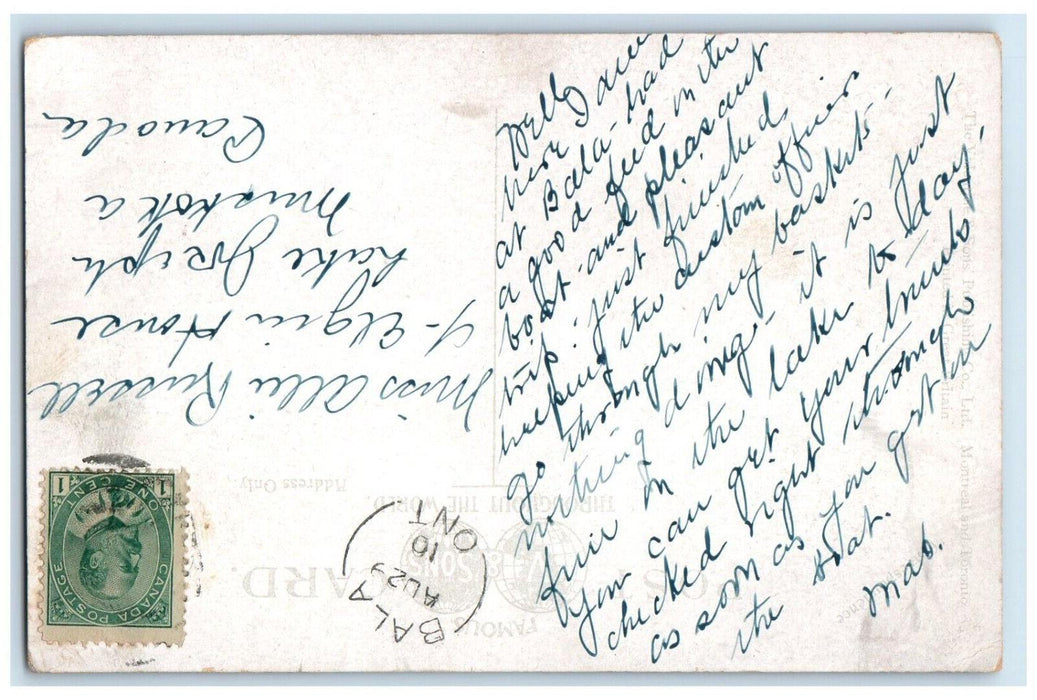 Well I am
here
at Bala - had
a good feed in the
boat - and pleasant
trip. just finished
helping the custom officer
go through my baskets -
nothing doing - it is just
fine on the lake to day.
You can get your trunks
checked right through
as soon as you get on
the boat.
Mab.
Miss Allie Russell
Elgin House
Lake Joseph
Muskoka
Canada
POST CARD.
FAMOUS
THROUGHOUT THE WORLD
Address Only.
BALA
AU 29
10
ONT
CANADA POSTAGE
ONE CENT
1
1